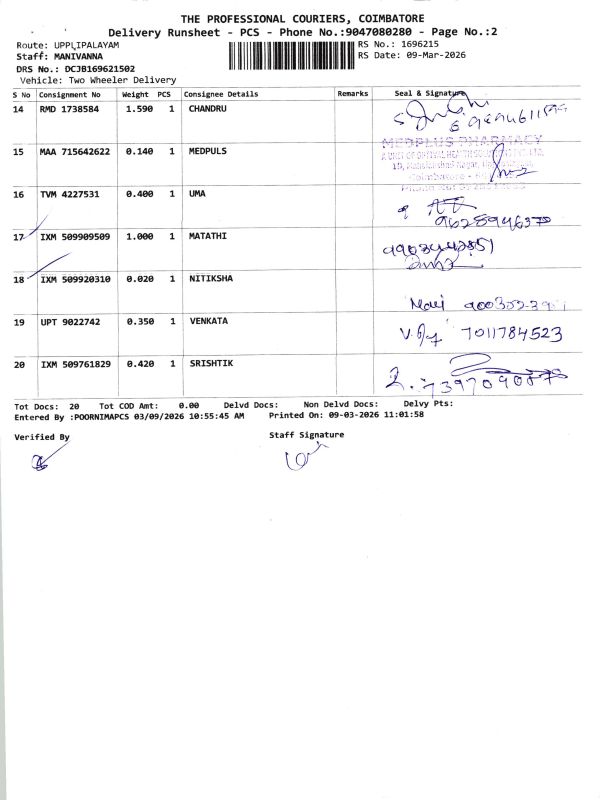 THE PROFESSIONAL COURIERS, COIMBATORE
Delivery Runsheet - PCS - Phone No.:9047080280 - Page No.:2
Route: UPPLIPALAYAM RS No.: 1696215
Staff: MANIVANNA RS Date: 09-Mar-2026
DRS No.: DCJB169621502
Vehicle: Two Wheeler Delivery
S No Consignment No Weight PCS Consignee Details Remarks Seal & Signature
14 RMD 1738584 1.590 1 CHANDRU
15 MAA 715642622 0.140 1 MEDPULS
MEDPLUS PHARMACY
16 TVM 4227531 0.400 1 UMA
9628946370
17 IXM 509909509 1.000 1 MATATHI
18 IXM 509920310 0.020 1 NITIKSHA
19 UPT 9022742 0.350 1 VENKATA
7011784523
20 IXM 509761829 0.420 1 SRISHTIK
Tot Docs: 20 Tot COD Amt: 0.00 Delvd Docs: Non Delvd Docs: Delvy Pts:
Entered By :POORNIMAPCS 03/09/2026 10:55:45 AM Printed On: 09-03-2026 11:01:58
Verified By Staff Signature